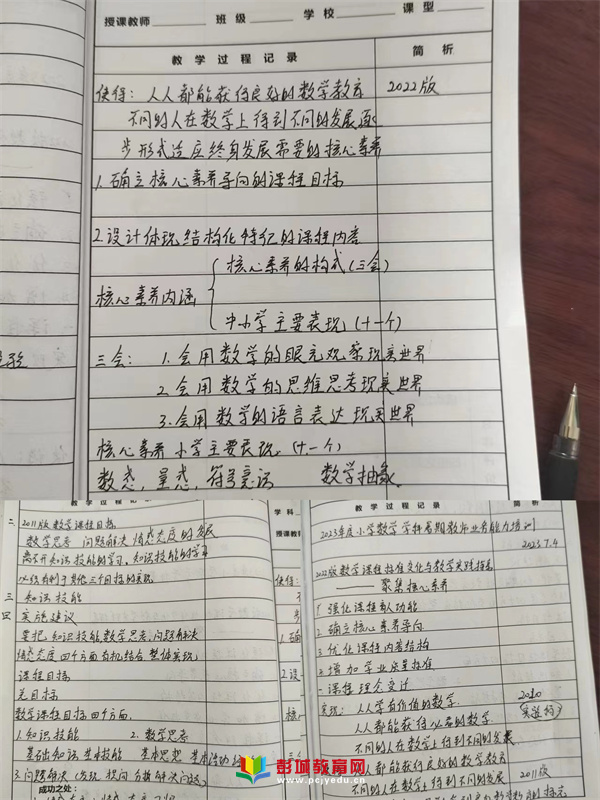 授课教师 班级 学校 课型
教学过程记录 简析
使得：人人都能获得良好的数学教育 2022版
不同的人在数学上得到不同的发展逐
步形式适应终身发展需要的核心素养
1.确立核心素养导向的课程目标
2.设计体现结构化特征的课程内容
核心素养的构式(三会)
核心素养内涵
中小学主要表现(十一个)
三会：1.会用数学的眼光观察现实世界
2.会用数学的思维思考现实世界
3.会用数学的语言表达现实世界
核心素养小学主要表现.(十一个)
数感，量感，符号意识 数学抽象
教学过程记录 简析
二、2011版数学课程目标
数学思考 问题解决 情感态度的发展
离不开知识技能的学习，知识技能的学习
必须有利于其他三个目标的实现
三 知识技能
四 实施建议
要把知识技能，数学思考，问题解决
情感态度四个方面有机结合 整体实现
课程目标
总目标
数学课程目标四个方面.
1.知识技能 2.数学思考
基础知识 基本技能 基本思想 基本活动
3.问题解决(发现、提问 分析 解决问题)
成功之处：
学科
授课教师
使得：
1.确
2.设
核
三会
教学过程记录 简析
2023年度小学数学学科暑期教师业务能力培训
2023.7.4
2022版数学课程标准变化与教学实践探索
——聚焦核心素养
1 强化课程育人功能
2 确立核心素养导向
3 优化课程内容结构
4 增加学业质量标准
一课程理念变迁
实现：人人学有价值的数学. 2000
人人都能获得必需的数学. (实验稿)
不同的人在数学上得到不同的发展
人人都能获得良好的数学教育 2011版
不同的人在数学上得到不同的发展
彭城教育网
www.pcjyedu.cn